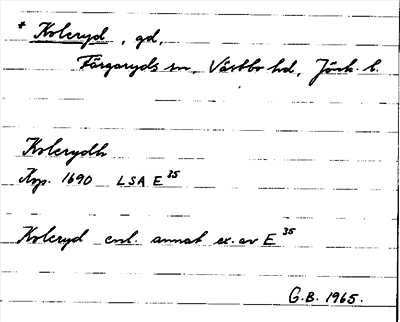 * Koleryd, gd,
Färgaryds sn, Västbo hd, Jönk. l.
Kolerydh
Kop. 1690 LSA E 35
Koleryd enl. annat ex. av E 35
G.B. 1965.